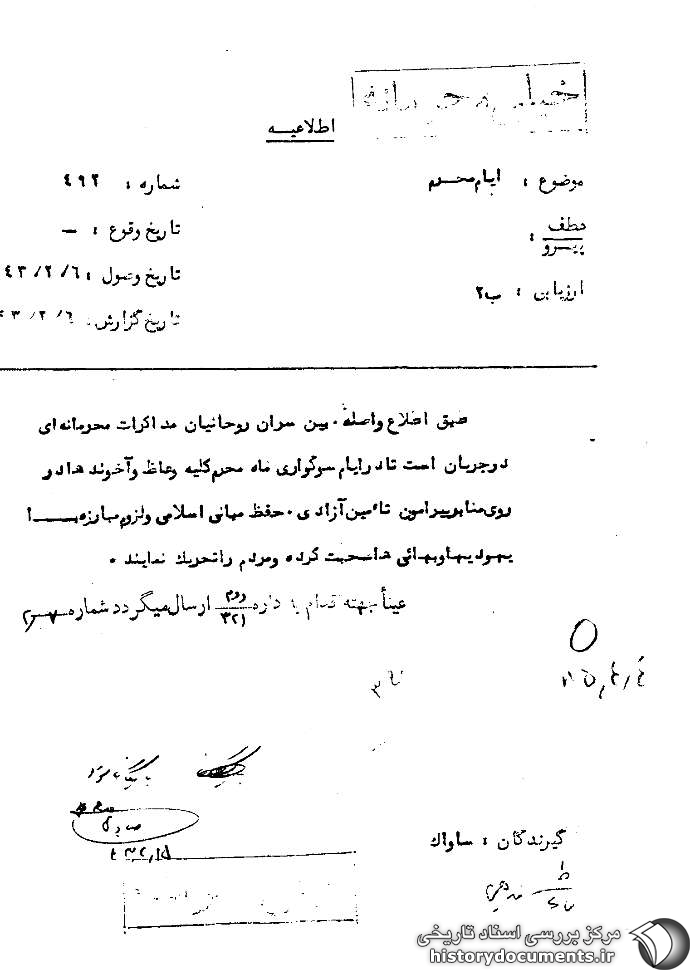 خیلی محرمانه
اطلاعیه
موضوع : ایام محرم
شماره : ۴۹۲
عطف
پیرو :
تاریخ وقوع : —
تاریخ وصول : ۴۳/۲/۶
ارزیابی : ب۲
تاریخ گزارش : ۴۳/۲/۶
طبق اطلاع واصله . بین سران روحانیان مذاکرات محرمانه ای
درجریان است تا در ایام سوگواری ماه محرم کلیه وعاظ و آخوند ها در
روی منابر پیرامون تأمین آزادی ، حفظ مبانی اسلامی و لزوم مبارزه با
یهودیها و بهائی ها صحبت کرده و مردم را تحریک نمایند .
عیناً جهته اقدام به اداره دوم/۳۲۱ ارسال میگردد شماره
بایگانی شود
گیرندگان : ساواک
مرکز بررسی اسناد تاریخی
historydocuments.ir